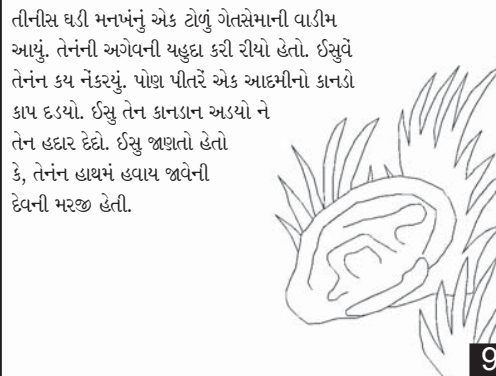 તીનીસ ઘડી મનખંનું એક ટોળું ગેતસેમાની વાડીમ
આયું. તેનંની અગેવની યહુદા કરી રીયો હેતો. ઈસુવેં
તેનંન કય નેંકરયું. પોણ પીતરેં એક આદમીનો કાનડો
કાપ દડયો. ઈસુ તેન કાનડાન અડયો ને
તેન હદાર દેદો. ઈસુ જાણતો હેતો
કે, તેનંન હાથમં હવાય જાવેની
દેવની મરજી હેતી.
9